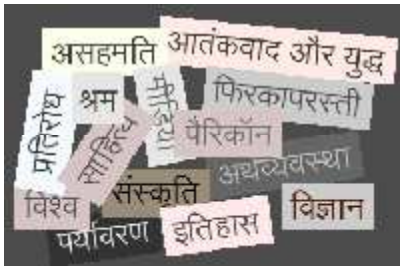 असहमति
आतंकवाद और युद्ध
प्रतिरोध
श्रम
मीडिया
फिरकापरस्ती
साहित्य
पैरिकॉन
अर्थव्यवस्था
विश्व
संस्कृति
विज्ञान
पर्यावरण
इतिहास